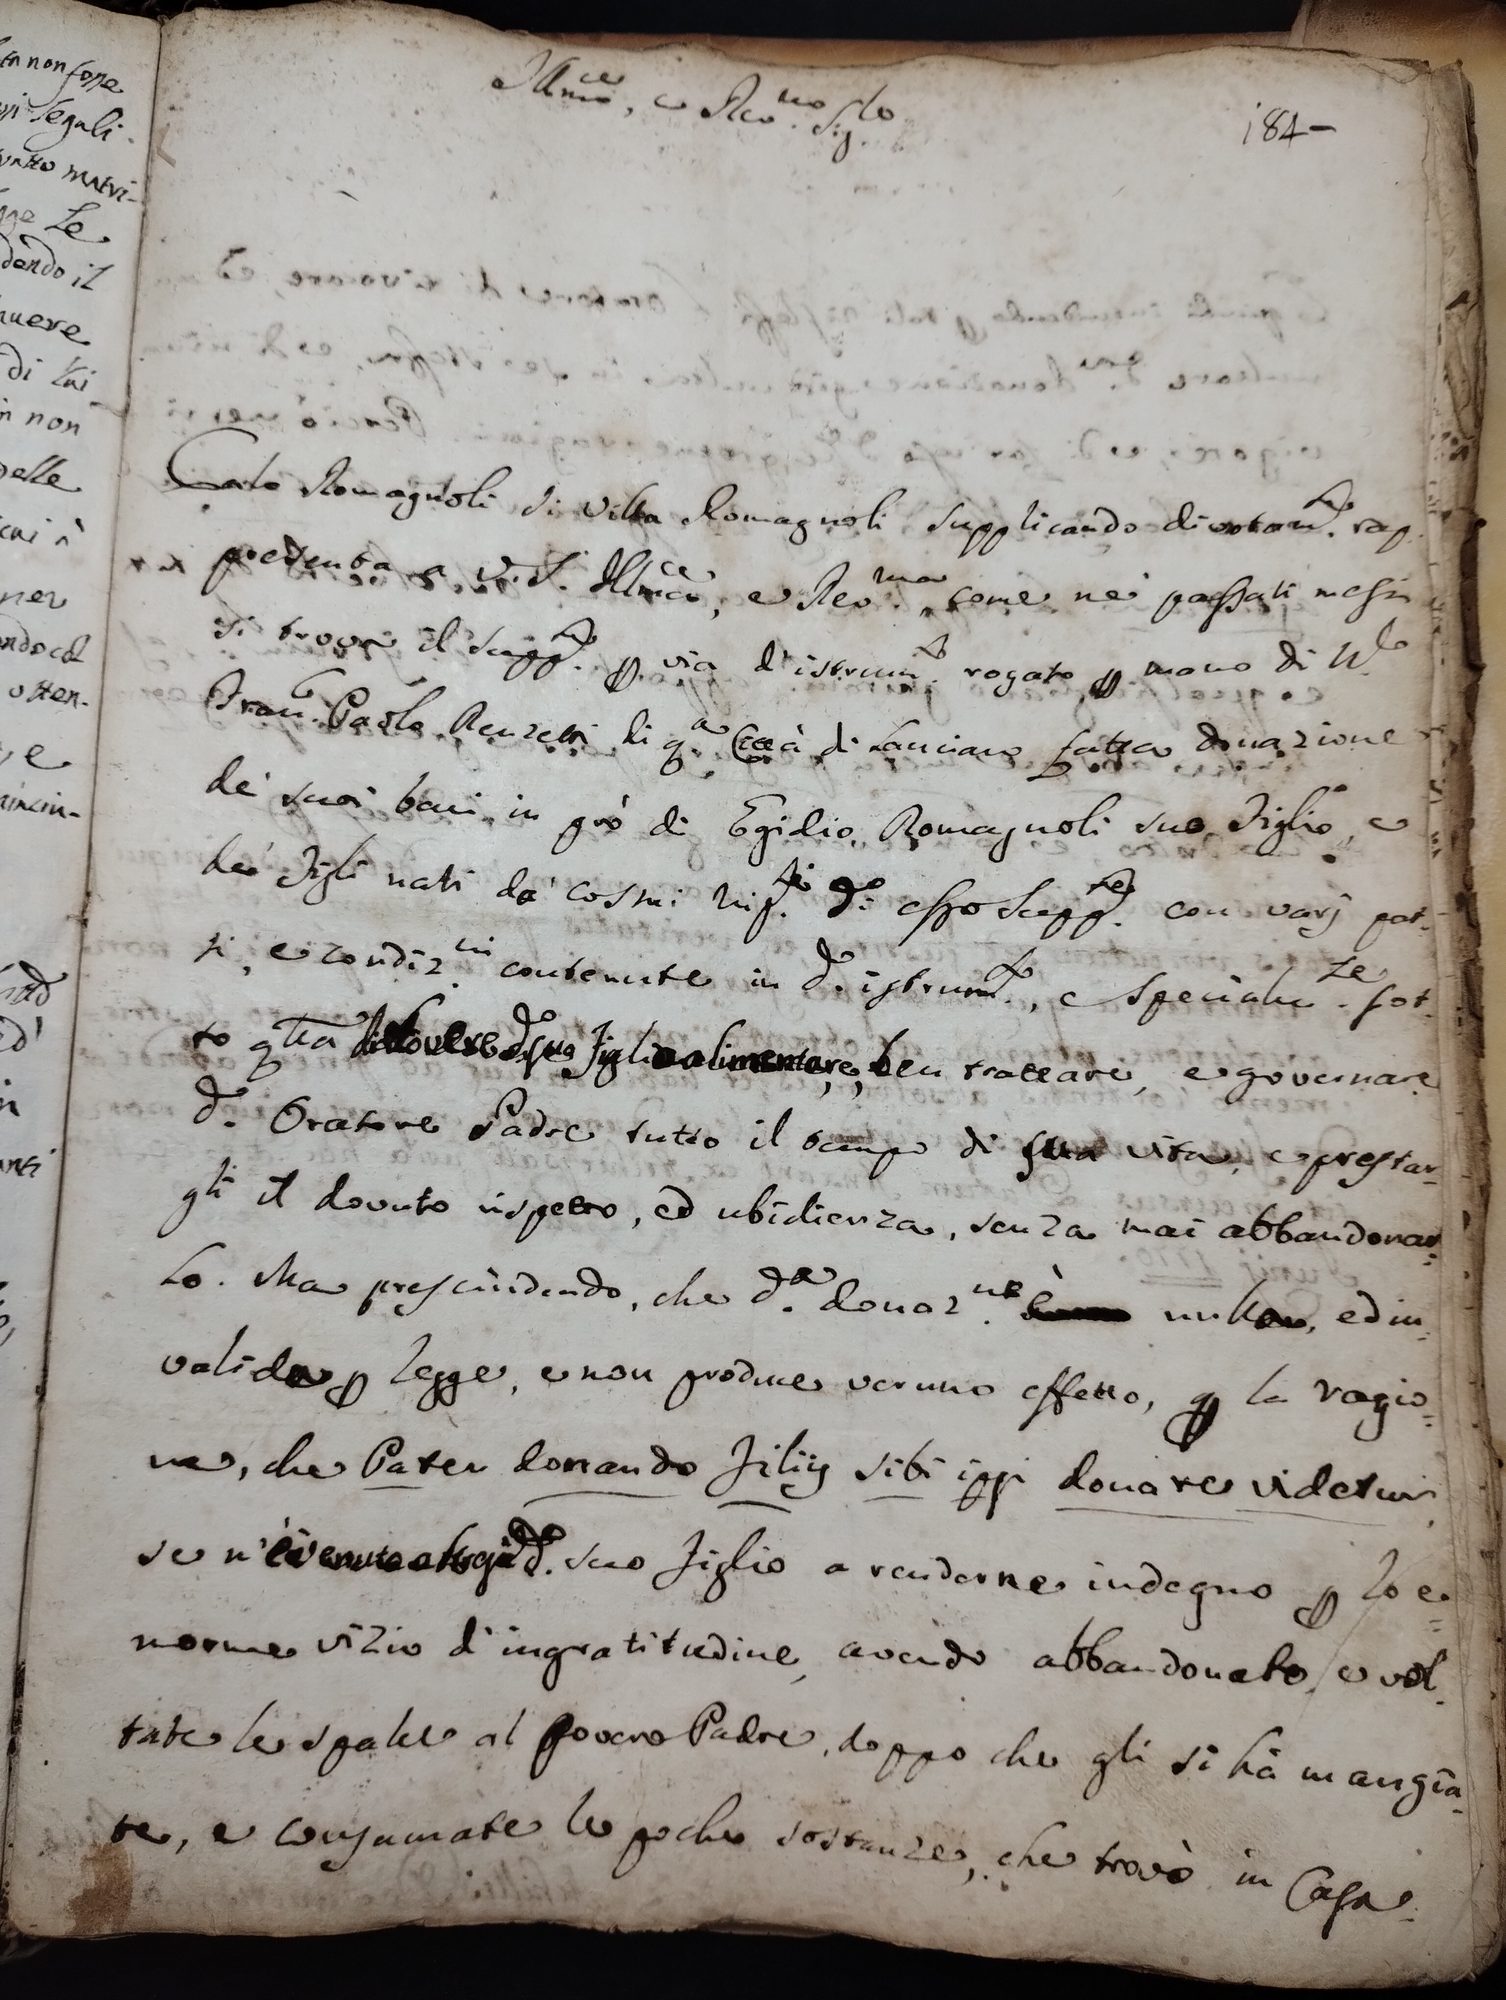 Ill.mo, e Rev.mo Sig.re
184
Carlo Romagnoli di Villa Romagnoli supplicando divotam.te rap-
presenta a V.S. Ill.ma, e Rev.ma, come nei passati mesi
si trovò il supp.te p via d'istrum.to rogato p mano di N.r
Fran.co Paolo Renzetti di q.a Città di Lanciano fatta donazione
de' suoi beni in prò di Egidio Romagnoli suo Figlio, e
dei Figli nati da' cosmi nip.ti d.o esso Supp.te con varj pat-
ti, e condiz.ni contenute in d.o istrum.to, e specialm.te sot-
to q.lla di dovere d.o suo Figlio alimentare, ben trattare, e governare
d.o Oratore Padre tutto il tempo di sua vita, e prestar-
gli il dovuto rispetto, ed ubidienza, senza mai abbandonar-
lo. Ma prescindendo, che d.a donaz.ne è nulla, ed in-
valida p legge, e non produce veruno effetto, p la ragio-
ne, che Pater donando Filijs sibi ipsi donare videtur,
se n'è venuto altresì d.o suo Figlio a renderne indegno p lo e-
norme vizio d'ingratitudine, avendo abbandonato, e vol-
tate le spalle al povero Padre, doppo che gli si hà mangia-
te, e consumate le poche sostanze, che trovò in Casa.
ta non fosse
legali.
matri-
Le
dendo il
di lui
in non
delle
ner
osten-